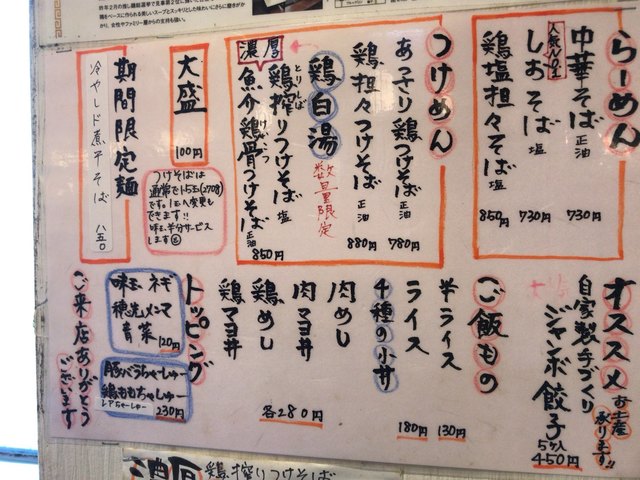 らーめん
中華そば 正油 730円
人気No.1
しおそば 塩 730円
鶏塩担々そば 塩 850円
つけめん
あっさり鶏つけそば 正油 780円
鶏担々つけそば 正油 880円
鶏白湯 数量限定
濃厚
鶏搾りつけそば 塩
魚介鶏骨つけそば 正油
850円
大盛 100円
つけそばは
通常で1.5玉(270g)
です。1玉へ変更も
できます!!
味玉半分サービス
します
期間限定麺
冷やし煮干そば 八五〇
オススメ
お土産承ります!!
自家製手づくり
ジャンボ餃子
5ヶ入 450円
ご飯もの
半ライス 130円
ライス 180円
4種の小丼
肉めし
肉マヨ丼
鶏めし
鶏マヨ丼
各280円
トッピング
味玉 ネギ
穂先メンマ
青菜 120円
豚バラちゃーしゅー
鶏ももちゃーしゅー
レアちゃーしゅー 230円
ご来店ありがとう
ございます
濃厚 鶏搾りつけそば